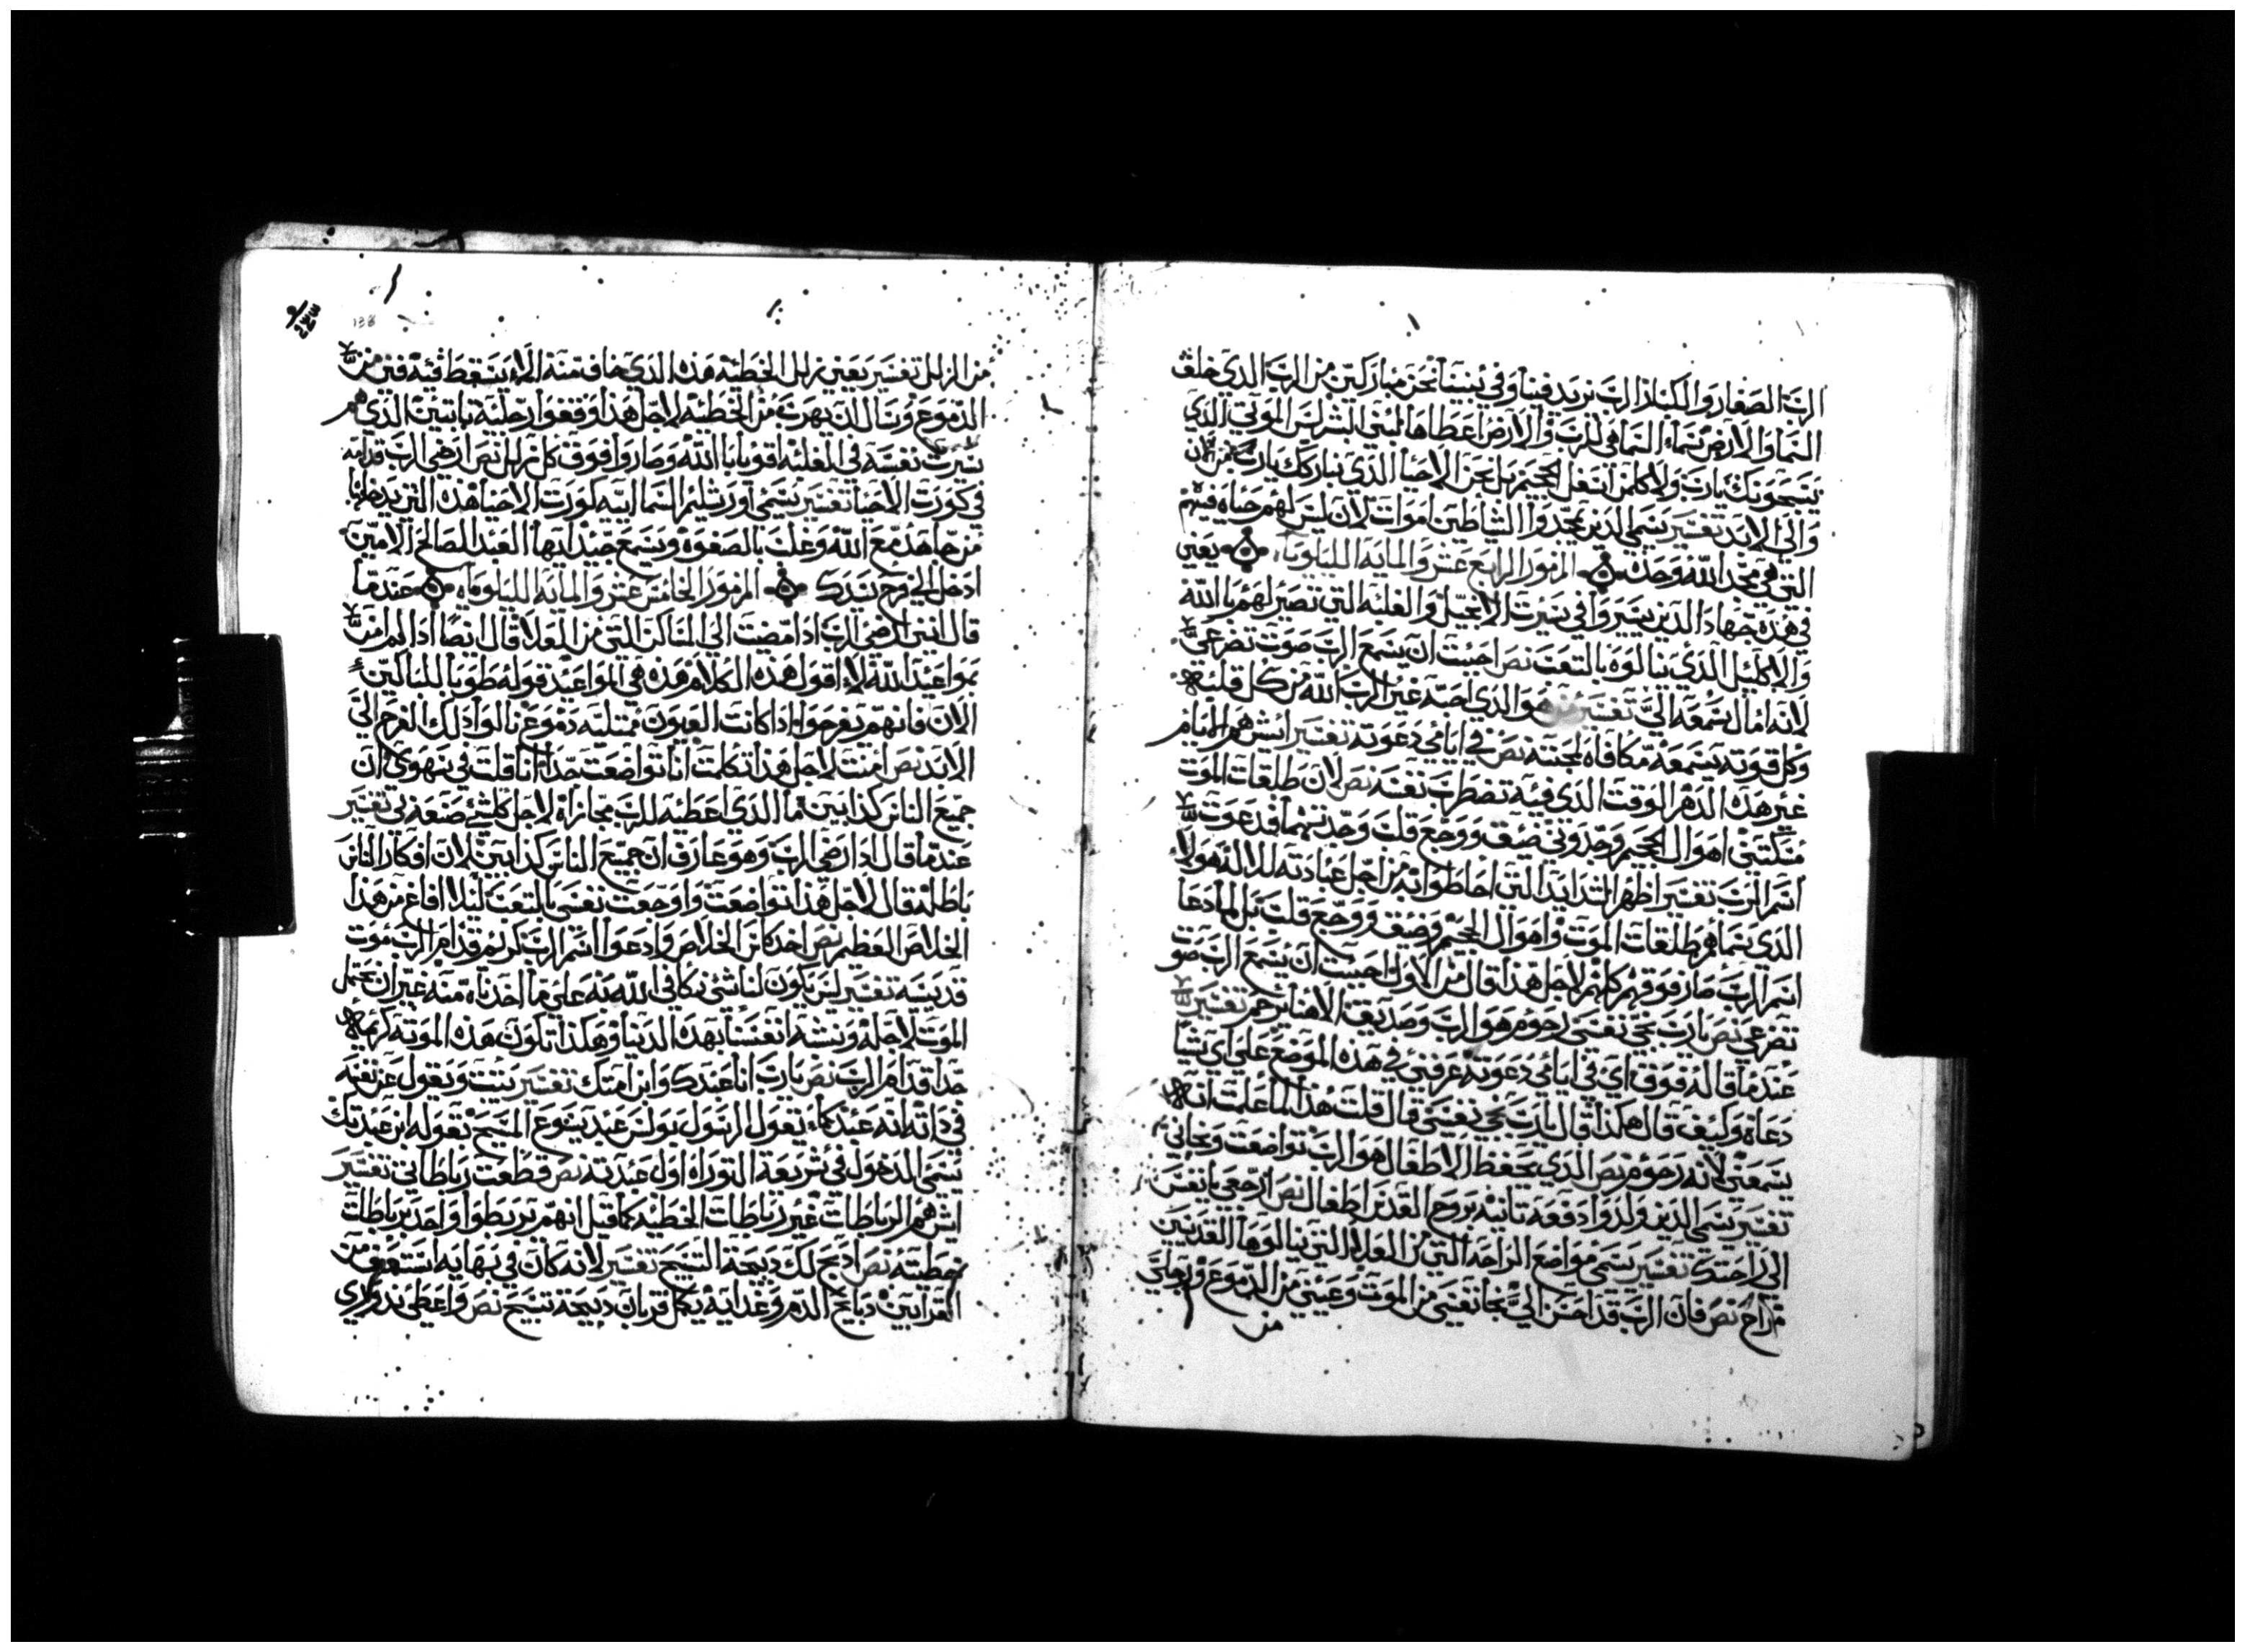 الرب الصغار والكبار الرب يزيد فينا وفي بنينا نحن مباركين من الرب الذي خلق
السما والارض سماء السما هي للرب والارض اعطاها لبني البشر ليس الموتي الذي
يسبحونك يارب ولا كلمن اسفل الجحيم بل نحن الاحيا الذي نبارك يارب من الان
والي الابد تفسير يسمي الذين يمجدوا الشياطين اموات لان ليس لهم حياه فيهم
التي هي مجد الله وحده المزمور الرابع عشر والمايه الليلويا يعني
في هذه جهاد الذين يسيروا في سيرت الانجيل والغلبه التي تصير لهم بالله
والاكليل الذي ينالوه بالتعب نص احببت ان يسمع الرب صوت تضرعي
لانه امال سمعه الي تفسير هو الذي احبه غير الرب الله من كل قلبه
وكل قوته يسمعه مكافاه لمحبته نص في ايامي دعوته تفسير ايش هم الايام
غير هذه الدهر الوقت الذي فيه تضطرب نفسه نص لان طلقات الموت
مسكتني اهوال الجحيم وجدوني ضيق ووجع قلب وجدتهما فدعوت
اسم الرب تفسير اظهر الشدايد التي احاطوا به من اجل عبادته للاله هولا
الذي يسماهم طلقات الموت واهوال الجحيم وضيق ووجع قلب بل لما دعا
اسم الرب صار فوقهم كلهم لاجل هذا قال من الاول احببت ان يسمع الرب صوت
تضرعي نص يارب نجي نفسي رحوم هو الرب وصديق الاهنا يرحم تفسير
عندما قاله فوق اي في ايامي دعوته عرفني في هذه الموضع علي اي شيا
دعاه وكيف قال هكذا قال يارب نجي نفسي قال قلت هذا لما علمت انه
يسمعني لانه رحوم نص الذي يحفظ الاطفال هو الرب تواضعت ونجاني
تفسير يسمي الذين ولدوا دفعه تانيه بروح القدس اطفال نص ارجعي يا نفسي
الي راحتك تفسير يسمي مواضع الراحه التي في العلا التي ينالوها القديسين
مراح نص فان الرب قد احسن الي نجا نفسي من الموت وعيني من الدموع ورجلي
من
من الزلل تفسير يعني زلل الخطيه هذه الذي خاف منه الا يسقط فيه فمن
الدموع وينال الذي يهرب من الخطيه لاجل هذا وقفوا رجليه تابتين الذي هم
سيرت نفسه في الغلبه اقويا بالله وصاروا فوق كل زلل نص ارضي الرب قدامه
في كورت الاحيا تفسير يسمي اورشليم السمايه كورت الاحيا هذه التي يدخلها
من جاهد مع الله وغلب بالصعوبه ويسمع جيد ايها العبد الصالح الامين
ادخل الي فرح سيدك المزمور الخامس عشر والمايه الليلوياه عندما
قال انني ارضي الرب اذا مضيت الي المساكن التي من العلا قال ايضا اذا لم امن
بمواعيد الله لا اقول هذه الكلام هذه هي المواعيد قوله طوبا للباكين
الان فانهم يفرحوا اذا كانت العيون ممتليه دموع نالوا ذلك الفرح الي
الابد نص امنت لاجل هذا تكلمت انا تواضعت جدا انا قلت في سهوي ان
جميع الناس كذابين ما الذي اعطيه للرب مجازاه لاجل كلشي صنعه بي تفسير
عندما قال لدا رضي الرب وهو عارف ان جميع الناس كذابين لان افكار الناس
باطله قال لاجل هذا تواضعت واوجعت نفسي بالتعب ليلا افاغ من هذا
الخلاص العظيم نص اخد كاس الخلاص وادعوا اسم الرب كريم قدام الرب موت
قديسيه تفسير ليس يكون لنا شي نكافي الله به علي ما اخدناه منه غير ان نحتمل
الموت لاجله ونشبه انفسنا بهذه الدنيا وهكذا تكون هذه الموته كريمه
جدا قدام الرب نص يارب انا عبدك وابن امتك تفسير يثبت ويقول عن نفسه
في داته انه عبد كما يقول الرسول بولس عبد يسوع المسيح بقوله ابن عبدتك
يسمي الدخول في شريعة التوراه اول عبديته نص قطعت رباطاتي تفسير
ايش هم الرباطات غير رباطات الخطيه كما قيل انهم يربطوا واحد برباطات
خطيته نص ادبح لك دبيحة التسبيح تفسير لانه كان في نهايه استعفي من
القرابين دبايح الدم وغدايه يكمل قربان دبيحة تسبيح نص واعطي ندوري